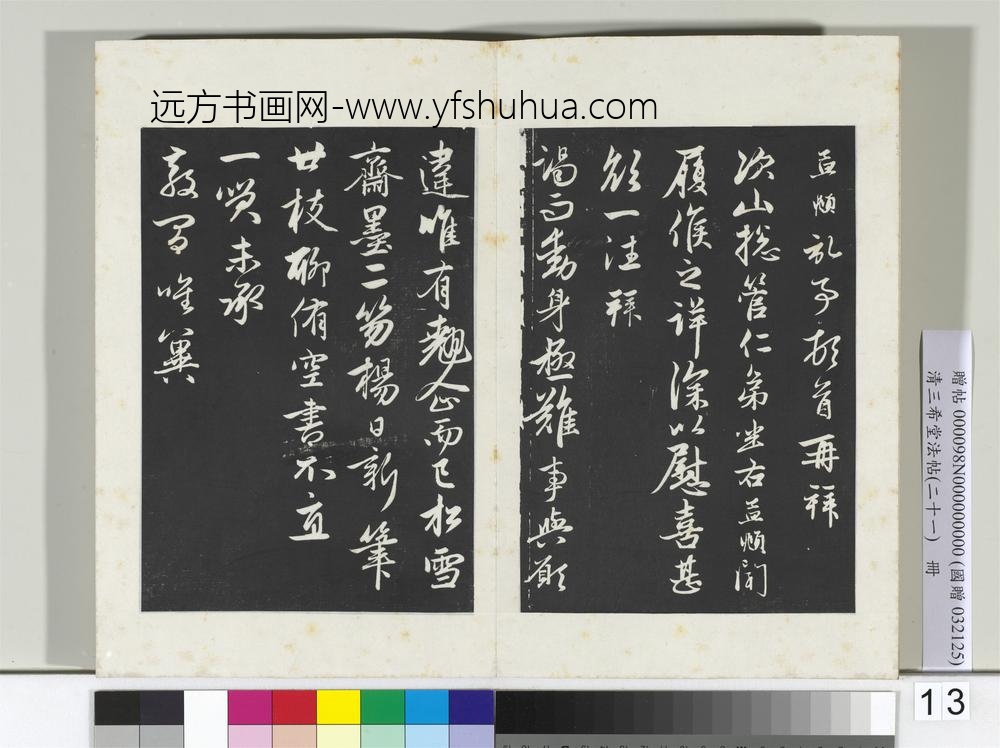 远方书画网-www.yfshuhua.com
孟頫記事頓首再拜
次山總管仁弟坐右孟頫聞
履候之詳深以慰喜甚
欲一往拜
謁而動身極難事與願
違唯有翹企而已松雪
齋墨二笏楊日新筆
廿枝聊侑空書不宜
一笑未承
教間唯冀
贈帖 000098N000000000 (國贈 032125)
清三希堂法帖(二十一) 冊
13